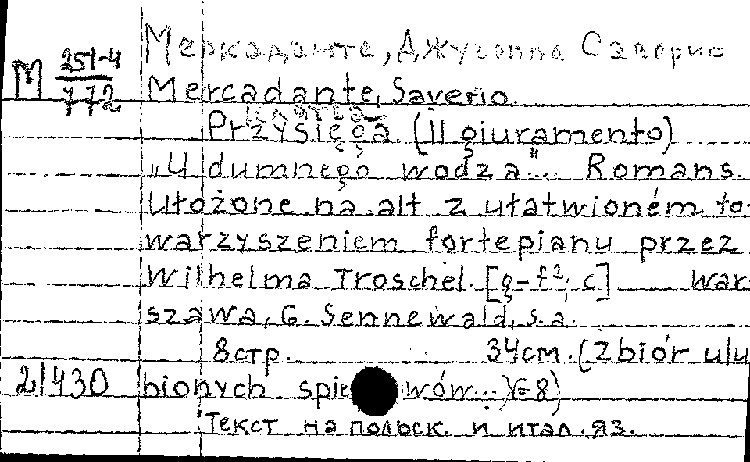 Меркаданте, Джузеппе Саверио
M 251-4
772
Mercadante, Saverio.
Przysięga (Il giuramento)
„U dumnego wodza"... Romans.
Ułożone na alt z ułatwioném to-
warzyszeniem fortepianu przez
Wilhelma Troschel. [g-f², c] War-
szawa, G. Sennewald, s.a.
8 стр. 34 cm. (Zbiór ulu-
21430 bionych śpiewów...)
Текст на польск. и итал. яз.